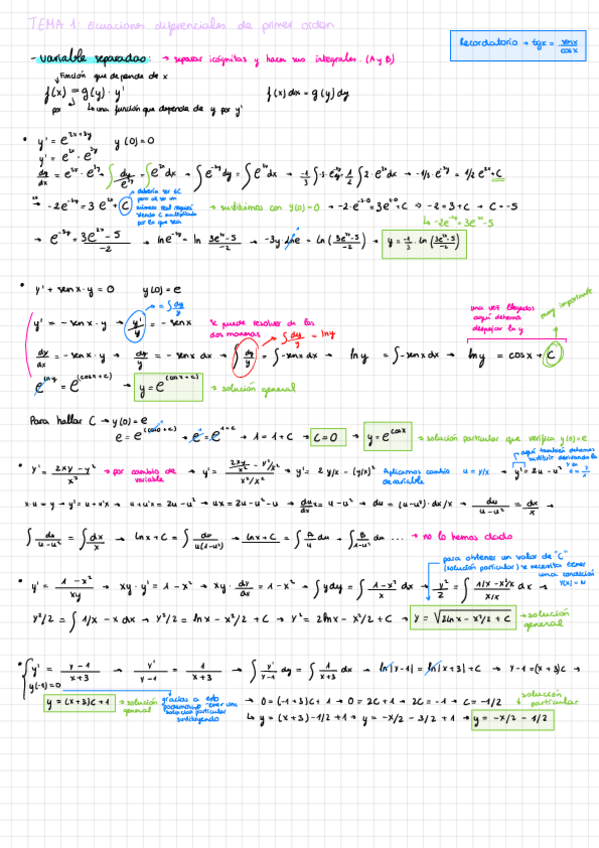 TEMA 1: Ecuaciones diferenciales de primer orden
Recordatorio → tgx = senx/cosx
- variable separadas: → separar icógnitas y hacer sus integrales. (A y B)
función que depende de x
f(x) = g(y) · y'    f(x) dx = g(y) dy
por ↳ una función que depende de y por y'
• y' = e^(2x+3y)    y(0)=0
y' = e^2x · e^3y
dy/dx = e^2x · e^3y → ∫ dy/e^3y = ∫ e^2x dx → ∫ e^-3y dy = ∫ e^2x dx →
→ -1/3 · e^-3y = 1/2 e^2x + C
→ -2e^-3y = 3e^2x + C → sustituimos con y(0)=0 → -2·e^-3·0 = 3e^2·0 + C → -2 = 3 + C → C = -5
↳ -2e^-3y = 3e^2x - 5
→ e^-3y = (3e^2x - 5)/-2 → ln e^-3y = ln (3e^2x - 5)/-2 → -3y · ln e = ln((3e^2x - 5)/-2) → y = -1/3 · ln((3e^2x - 5)/-2)
• y' + senx · y = 0    y(0) = e
= ∫ dy/y
y' = -senx · y → y'/y = -senx
se puede resolver de las dos maneras
∫ dy/y = ln y
una vez llegados aquí debemos despejar la y
muy importante
dy/dx = -senx · y → dy/y = -senx dx → ∫ dy/y = ∫ -senx dx → ln y = ∫ -senx dx → ln y = cosx + C
e^lny = e^(cosx+c) → y = e^(cosx+c) → solución general
Para hallar C → y(0) = e
e = e^(cos0+c) → e = e^1+c → 1 = 1 + C → C = 0 → y = e^cosx → solución particular que verifica y(0)=e
• y' = (2xy - y²)/x² → por cambio de variable → y' = (2xy/x² - y²/x²)/(x²/x²) → y' = 2 y/x - (y/x)² Aplicamos cambio de variable u = y/x → y' = 2u - u²
aquí también debemos sustituir derivando la
x·u = y → y' = u + u'x → u + u'x = 2u - u² → u'x = 2u - u² - u → du/dx x = u - u² → du = (u - u²) · dx/x → du/(u - u²) = dx/x →
∫ du/(u - u²) = ∫ dx/x → lnx + C = ∫ du/(u(1-u)) → lnx + C = ∫ A/u du + ∫ B/(1-u) du ... → no lo hemos dado
para obtener un valor de "C" (solución particular) se necesita tener una condición
• y' = (1 - x²)/xy → xy · y' = 1 - x² → xy · dy/dx = 1 - x² → ∫ y dy = ∫ (1 - x²)/x dx → y²/2 = ∫ (1/x - x²/x)/(x/x) dx →
y²/2 = ∫ 1/x - x dx → y²/2 = lnx - x²/2 + C → y² = 2lnx - x²/2 + C → y = √(2lnx - x²/2 + C) → solución general
• { y' = (y - 1)/(x + 3) → y'/(y - 1) = 1/(x + 3) → ∫ y'/(y - 1) dy = ∫ 1/(x + 3) dx → ln|y - 1| = ln|x + 3| + C → y - 1 = (x + 3) C →
y(-1) = 0
y = (x + 3) C + 1 → solución general
gracias a esto podemos tener una solución particular sustituyendo
→ 0 = (-1+3) C + 1 → 0 = 2C + 1 → 2C = -1 → C = -1/2
solución particular
↳ y = (x + 3) · -1/2 + 1 → y = -x/2 - 3/2 + 1 → y = -x/2 - 1/2